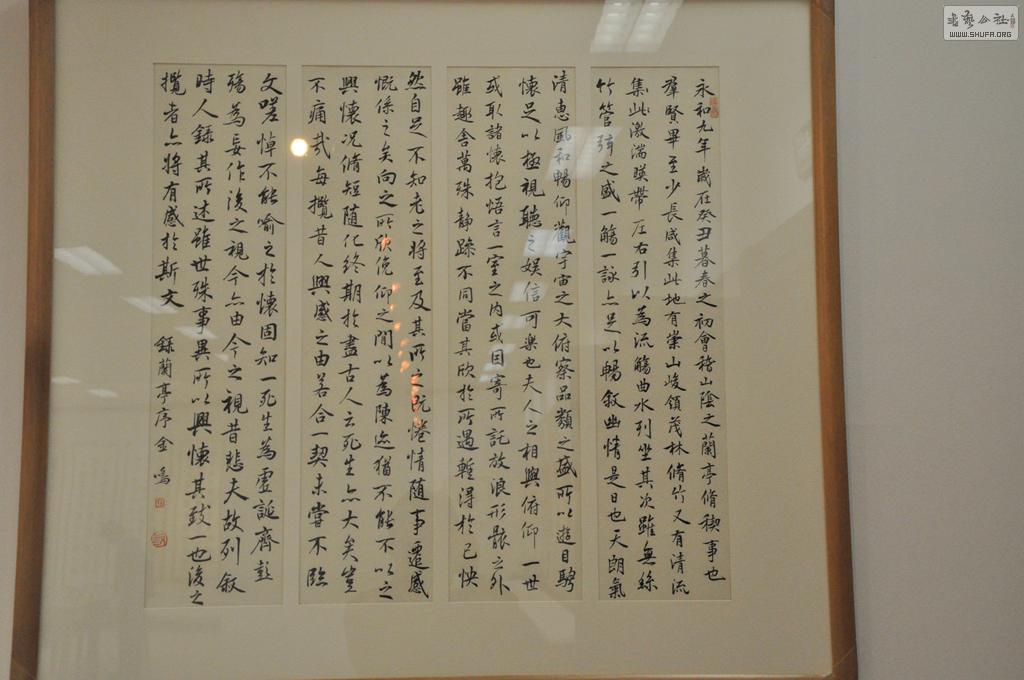 永和九年歲在癸丑暮春之初會稽山陰之蘭亭脩稧事也
羣賢畢至少長咸集此地有崇山峻領茂林脩竹又有清流
集此激湍暎帶左右引以為流觴曲水列坐其次雖無絲
竹管弦之盛一觴一詠亦足以暢敘幽情是日也天朗氣
清惠風和暢仰觀宇宙之大俯察品類之盛所以遊目騁
懷足以極視聽之娛信可樂也夫人之相與俯仰一世
或取諸懷抱悟言一室之內或因寄所託放浪形骸之外
雖趣舍萬殊靜躁不同當其欣於所遇暫得於己怏
然自足不知老之將至及其所之既惓情随事遷感
慨係之矣向之所欣俛仰之閒以為陳迹猶不能不以之
興懷況脩短随化終期於盡古人云死生亦大矣豈
不痛哉每攬昔人興感之由若合一契未嘗不臨
文嗟悼不能喻之於懷固知一死生為虛誕齊彭
殤為妄作後之視今亦由今之視昔悲夫故列敘
時人錄其所述雖世殊事異所以興懷其致一也後之
攬者亦將有感於斯文
錄蘭亭序金鳴
書藝公社
WWW.SHUFA.ORG